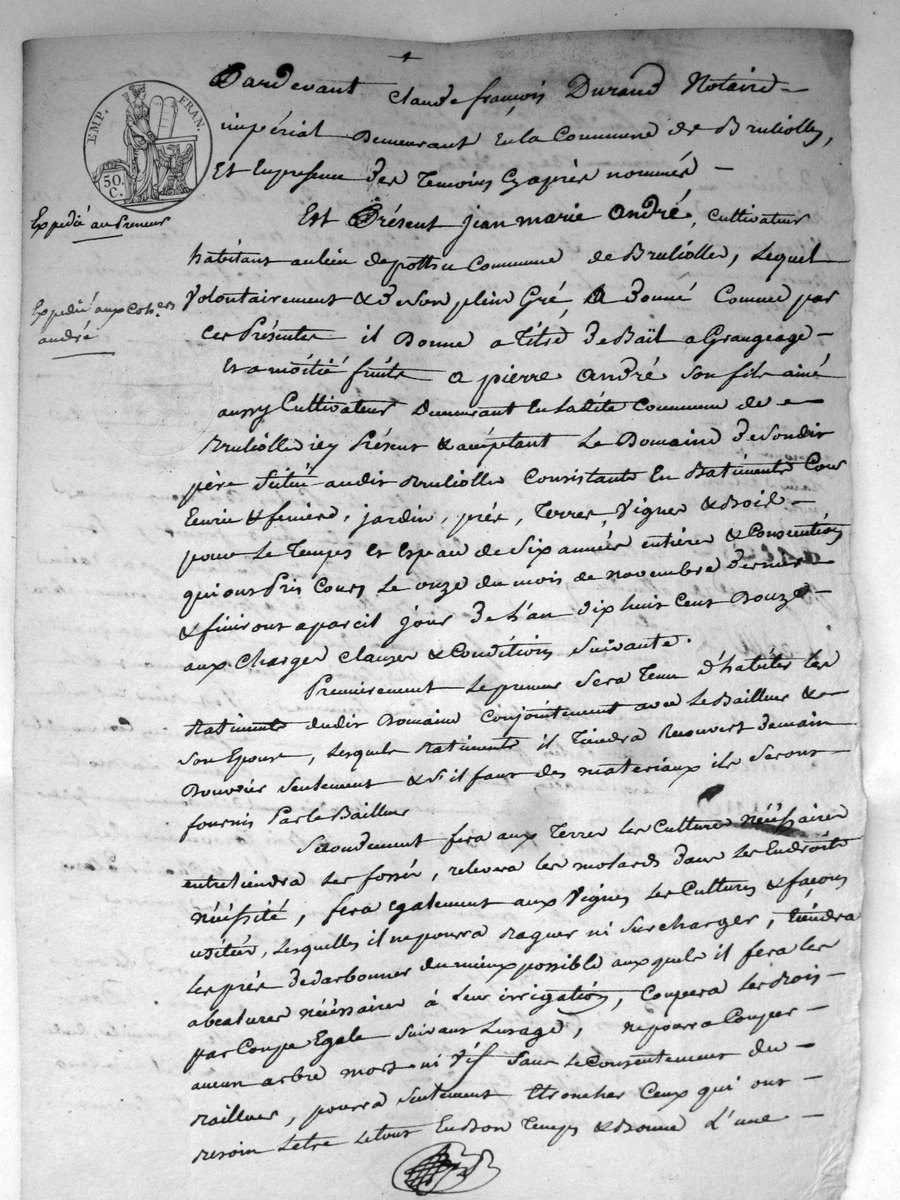 EMP. FRAN.
50 C.
Pardevant Claude françois Durand Notaire
impérial Demeurant En la Commune de Bruliolles,
Et En presence des Temoins Cy après nommés
Expedié au Preneur
Est Présent Jean marie André, Cultivateur
habitant au lieu de Commune de Bruliolles, Lequel
Volontairement & de Son plein Gré a Donné Comme par
Expedié aux Coh.ers
andré
ces Présentes il Donne a Titre de Bail a Grangeage
Et a moitié fruits a pierre André Son fils ainé
aussy Cultivateur Demeurant En Ladite Commune de
Brulliolle icy Présent & acceptant Le Domaine de Son dit
père Situé audit Brulliolle Consistante En Batiments Cour
Ecurie & feniere, jardin, prés, Terres, Vignes & Bois
pour Le Temps et Espace de Six années entières & Consecutives
qui ont Pris Cours Le onze du mois de novembre dernier
& finiront a pareil jour de L'an dix huit Cent Douze
aux Charges Clauses & Conditions Suivante.
Premierement Le preneur Sera Tenu d'habiter Les
Batiments dudit Domaine Conjointement avec Le Bailleur &
Son Epouse, Lesquels Batiments il Tiendra Recouvert de main
Bouvier Seulement & S'il faut des materiaux ils Seront
fournis Par Le Bailleur
Secondement fera aux Terres Les Cultures Nécéssaires
entretiendra Les fossés, relevera Les molards dans Les Endroits
nécéssité, fera Egalement aux Vignes Les Cultures & façons
usitées, Lesquelles il ne pourra ni Surcharger, Tiendra
Les prés dedarbonner du mieux possible auxquels il fera Les
abeatures nécéssaires à Leur irrigation, Coupera Les Bois
par Coupe Egale Suivant L'usage, ne pourra Couper
aucun arbre mort ni Vif Sans Le Consentement du
Bailleur, pourra Seulement Etroncher Ceux qui ont
Besoin Letre Le tout En Bon Temps & Bonne L'une